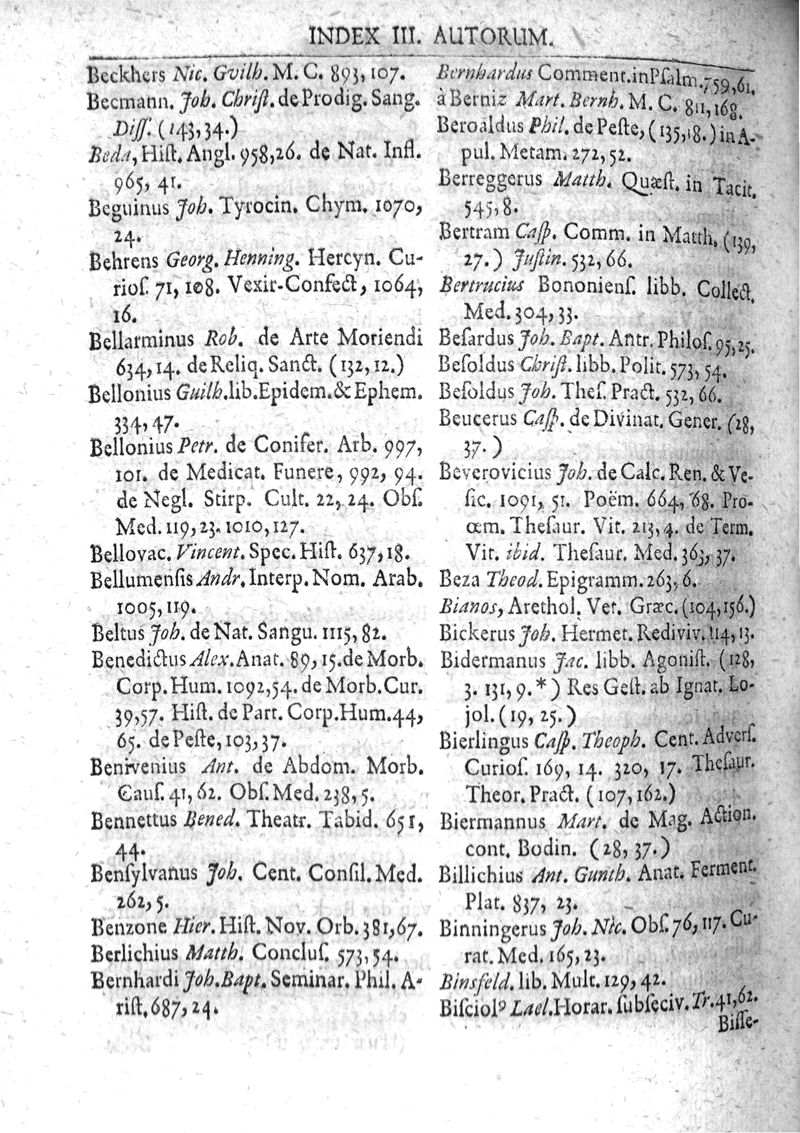 INDEX III. AUTORUM.
Beckhers Nic. Gvilh. M. C. 893, 107.
Becmann. Joh. Chriſt. de Prodig. Sang.
Diſſ. (143,34.)
Beda, Hiſt. Angl. 958,26. de Nat. Infl.
965, 41.
Beguinus Joh. Tyrocin. Chym. 1070,
24.
Behrens Georg. Henning. Hercyn. Cu-
rioſ. 71, 108. Vexir-Confect, 1064,
16.
Bellarminus Rob. de Arte Moriendi
634,14. de Reliq. Sanct. (132,12.)
Bellonius Guilh. lib. Epidem. & Ephem.
334,47.
Bellonius Petr. de Conifer. Arb. 997,
101. de Medicat. Funere, 992, 94.
de Negl. Stirp. Cult. 22, 24. Obſ.
Med. 119,23. 1010,127.
Bellovac. Vincent. Spec. Hiſt. 637,18.
Bellumenſis Andr. Interp. Nom. Arab.
1005, 119.
Beltus Joh. de Nat. Sangu. 1115, 82.
Benedictus Alex. Anat. 89, 15. de Morb.
Corp. Hum. 1092,54. de Morb. Cur.
39,57. Hiſt. de Part. Corp. Hum. 44,
65. de Peſte, 103, 37.
Benivenius Ant. de Abdom. Morb.
Cauſ. 41, 62. Obſ. Med. 238, 5.
Bennettus Bened. Theatr. Tabid. 651,
44.
Benſylvanus Joh. Cent. Conſil. Med.
262, 5.
Benzone Hier. Hiſt. Nov. Orb. 381, 67.
Berlichius Matth. Concluſ. 573, 54.
Bernhardi Joh. Bapt. Seminar. Phil. A-
riſt. 687, 24.
Bernhardus Comment. in Pſalm. 759,61.
à Berniz Mart. Bernh. M. C. 811, 168.
Beroaldus Phil. de Peſte, (135,18.) in A-
pul. Metam. 272, 52.
Berreggerus Matth. Quæſt. in Tacit.
545, 8.
Bertram Caſp. Comm. in Matth. (139,
27.) Juſtin. 532, 66.
Bertrucius Bononienſ. libb. Collect.
Med. 304, 33.
Beſardus Joh. Bapt. Antr. Philoſ. 95,25.
Beſoldus Chriſt. libb. Polit. 573, 54.
Beſoldus Joh. Theſ. Pract. 532, 66.
Beucerus Caſp. de Divinat. Gener. (28,
37.)
Beverovicius Joh. de Calc. Ren. & Ve-
ſic. 1091, 51. Poëm. 664, 68. Pro-
œm. Theſaur. Vit. 213, 4. de Term.
Vit. ibid. Theſaur. Med. 363, 37.
Beza Theod. Epigramm. 263, 6.
Bianos, Arethol. Vet. Græc. (104,156.)
Bickerus Joh. Hermet. Rediviv. 114, 13.
Bidermanus Jac. libb. Agoniſt. (128,
3. 131, 9.*) Res Geſt. ab Ignat. Lo-
jol. (19, 25.)
Bierlingus Caſp. Theoph. Cent. Adverſ.
Curioſ. 169, 14. 320, 17. Theſaur.
Theor. Pract. (107,162.)
Biermannus Mart. de Mag. Action.
cont. Bodin. (28, 37.)
Billichius Ant. Gunth. Anat. Ferment.
Plat. 837, 23.
Binningerus Joh. Nic. Obſ. 76, 117. Cu-
rat. Med. 165, 23.
Binsfeld. lib. Mult. 129, 42.
Biſciolꝰ Lael. Horar. ſubſeciv. Tr. 41,62.
Biſſe-